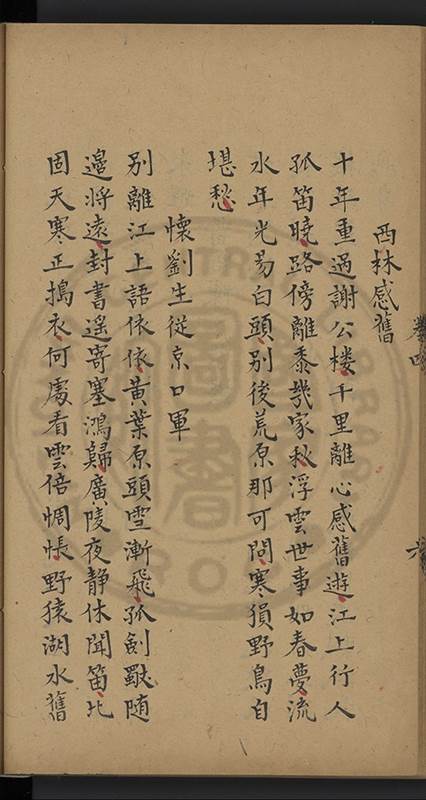 西林感舊
十年重過謝公楼千里離心感舊遊江上行人
孤笛曉路傍離黍幾家秋浮雲世事如春夢流
水年光易白頭別後荒原那可問寒猿野鳥自
堪愁
懷劉生從京口軍
別離江上語依依黃葉原頭雪漸飛孤劍敺随
邊將遠封書遥寄塞鴻歸廣陵夜静休聞笛北
固天寒正搗衣何處看雲倍惆悵野猿湖水舊